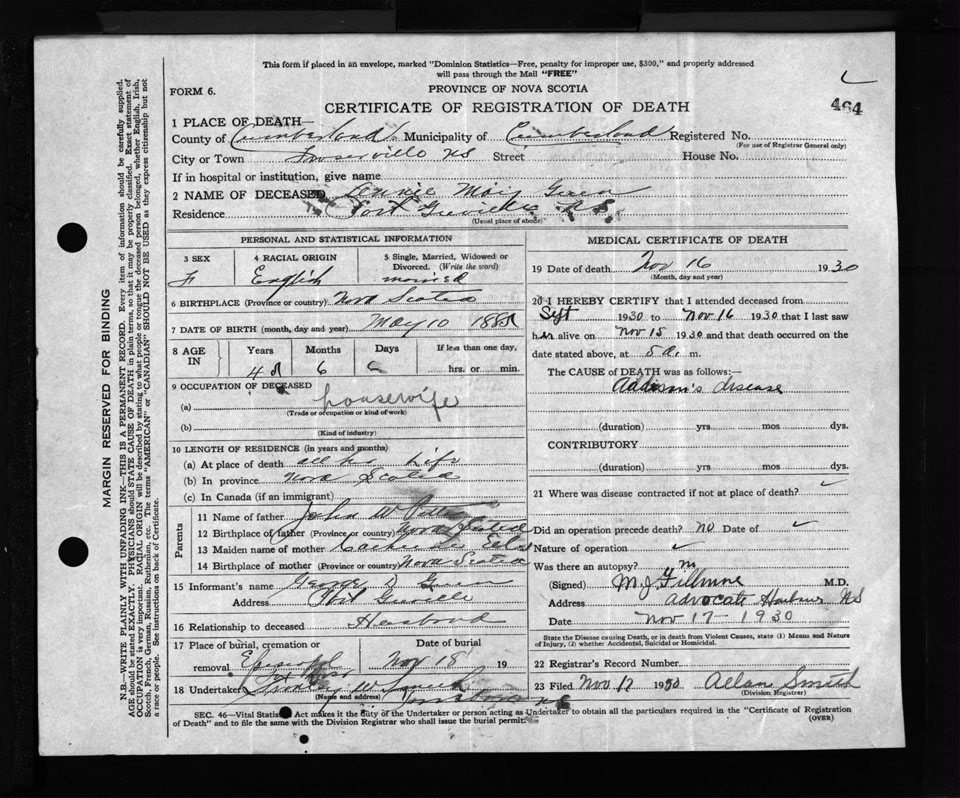 This form if placed in an envelope, marked "Dominion Statistics—Free, penalty for improper use, $300," and properly addressed
will pass through the Mail "FREE"
FORM 6.
PROVINCE OF NOVA SCOTIA
CERTIFICATE OF REGISTRATION OF DEATH
464
1 PLACE OF DEATH—
County of Cumberland Municipality of Cumberland Registered No.
(For use of Registrar General only)
City or Town NS Street House No.
If in hospital or institution, give name
2 NAME OF DECEASED
Residence Port Greville N.S.
(Usual place of abode)
PERSONAL AND STATISTICAL INFORMATION
3 SEX 4 RACIAL ORIGIN 5 Single, Married, Widowed or
Divorced. (Write the word)
F English married
6 BIRTHPLACE (Province or country) Nova Scotia
7 DATE OF BIRTH (month, day and year) May 10
8 AGE IN Years Months Days If less than one day,
6 6 hrs. or min.
9 OCCUPATION OF DECEASED
(a) housewife
(Trade or occupation or kind of work)
(b)
(Kind of industry)
10 LENGTH OF RESIDENCE (in years and months)
(a) At place of death all her life
(b) In province Nova Scotia
(c) In Canada (if an immigrant)
Parents
11 Name of father John W
12 Birthplace of father (Province or country) Nova Scotia
13 Maiden name of mother
14 Birthplace of mother (Province or country) Nova Scotia
15 Informant's name George D
Address Port Greville
16 Relationship to deceased Husband
17 Place of burial, cremation or Date of burial
removal Nov 18 19
18 Undertaker
(Name and address)
MEDICAL CERTIFICATE OF DEATH
19 Date of death Nov 16 1930
(Month, day and year)
20 I HEREBY CERTIFY that I attended deceased from
Sept 1930 to Nov 16 1930 that I last saw
her alive on Nov 15 1930 and that death occurred on
date stated above, at 5 a. m.
The CAUSE of DEATH was as follows:
Addison's disease
(duration) yrs mos dys.
CONTRIBUTORY
(duration) yrs mos dys.
21 Where was disease contracted if not at place of death?
Did an operation precede death? no Date of
Nature of operation
Was there an autopsy? no
(Signed) M J Fillmore M.D.
Address Advocate Harbour NS
Date Nov 17 - 1930
State the Disease causing Death, or in death from Violent Causes, state (1) Means and Nature
of Injury, (2) whether Accidental, Suicidal or Homicidal.
22 Registrar's Record Number
23 Filed Nov 17 1930 Allan Smith
(Division Registrar)
SEC. 46—Vital Statistics Act makes it the duty of the Undertaker or person acting as Undertaker to obtain all the particulars required in the "Certificate of Registration
of Death" and to file the same with the Division Registrar who shall issue the burial permit.
(OVER)
MARGIN RESERVED FOR BINDING
N.B.—WRITE PLAINLY WITH UNFADING INK—THIS IS A PERMANENT RECORD. Every item of information should be carefully supplied.
AGE should be stated EXACTLY. PHYSICIANS should STATE CAUSE OF DEATH in plain terms, so that it may be properly classified. Exact statement of
OCCUPATION is very important. RACIAL ORIGIN will be described by stating to what people or tongue the deceased person belonged, whether English, Irish,
Scotch, French, German, Russian, Ruthenian, etc. The terms "AMERICAN" or "CANADIAN" SHOULD NOT BE USED as they express citizenship but not
a race or people. See instructions on back of Certificate.